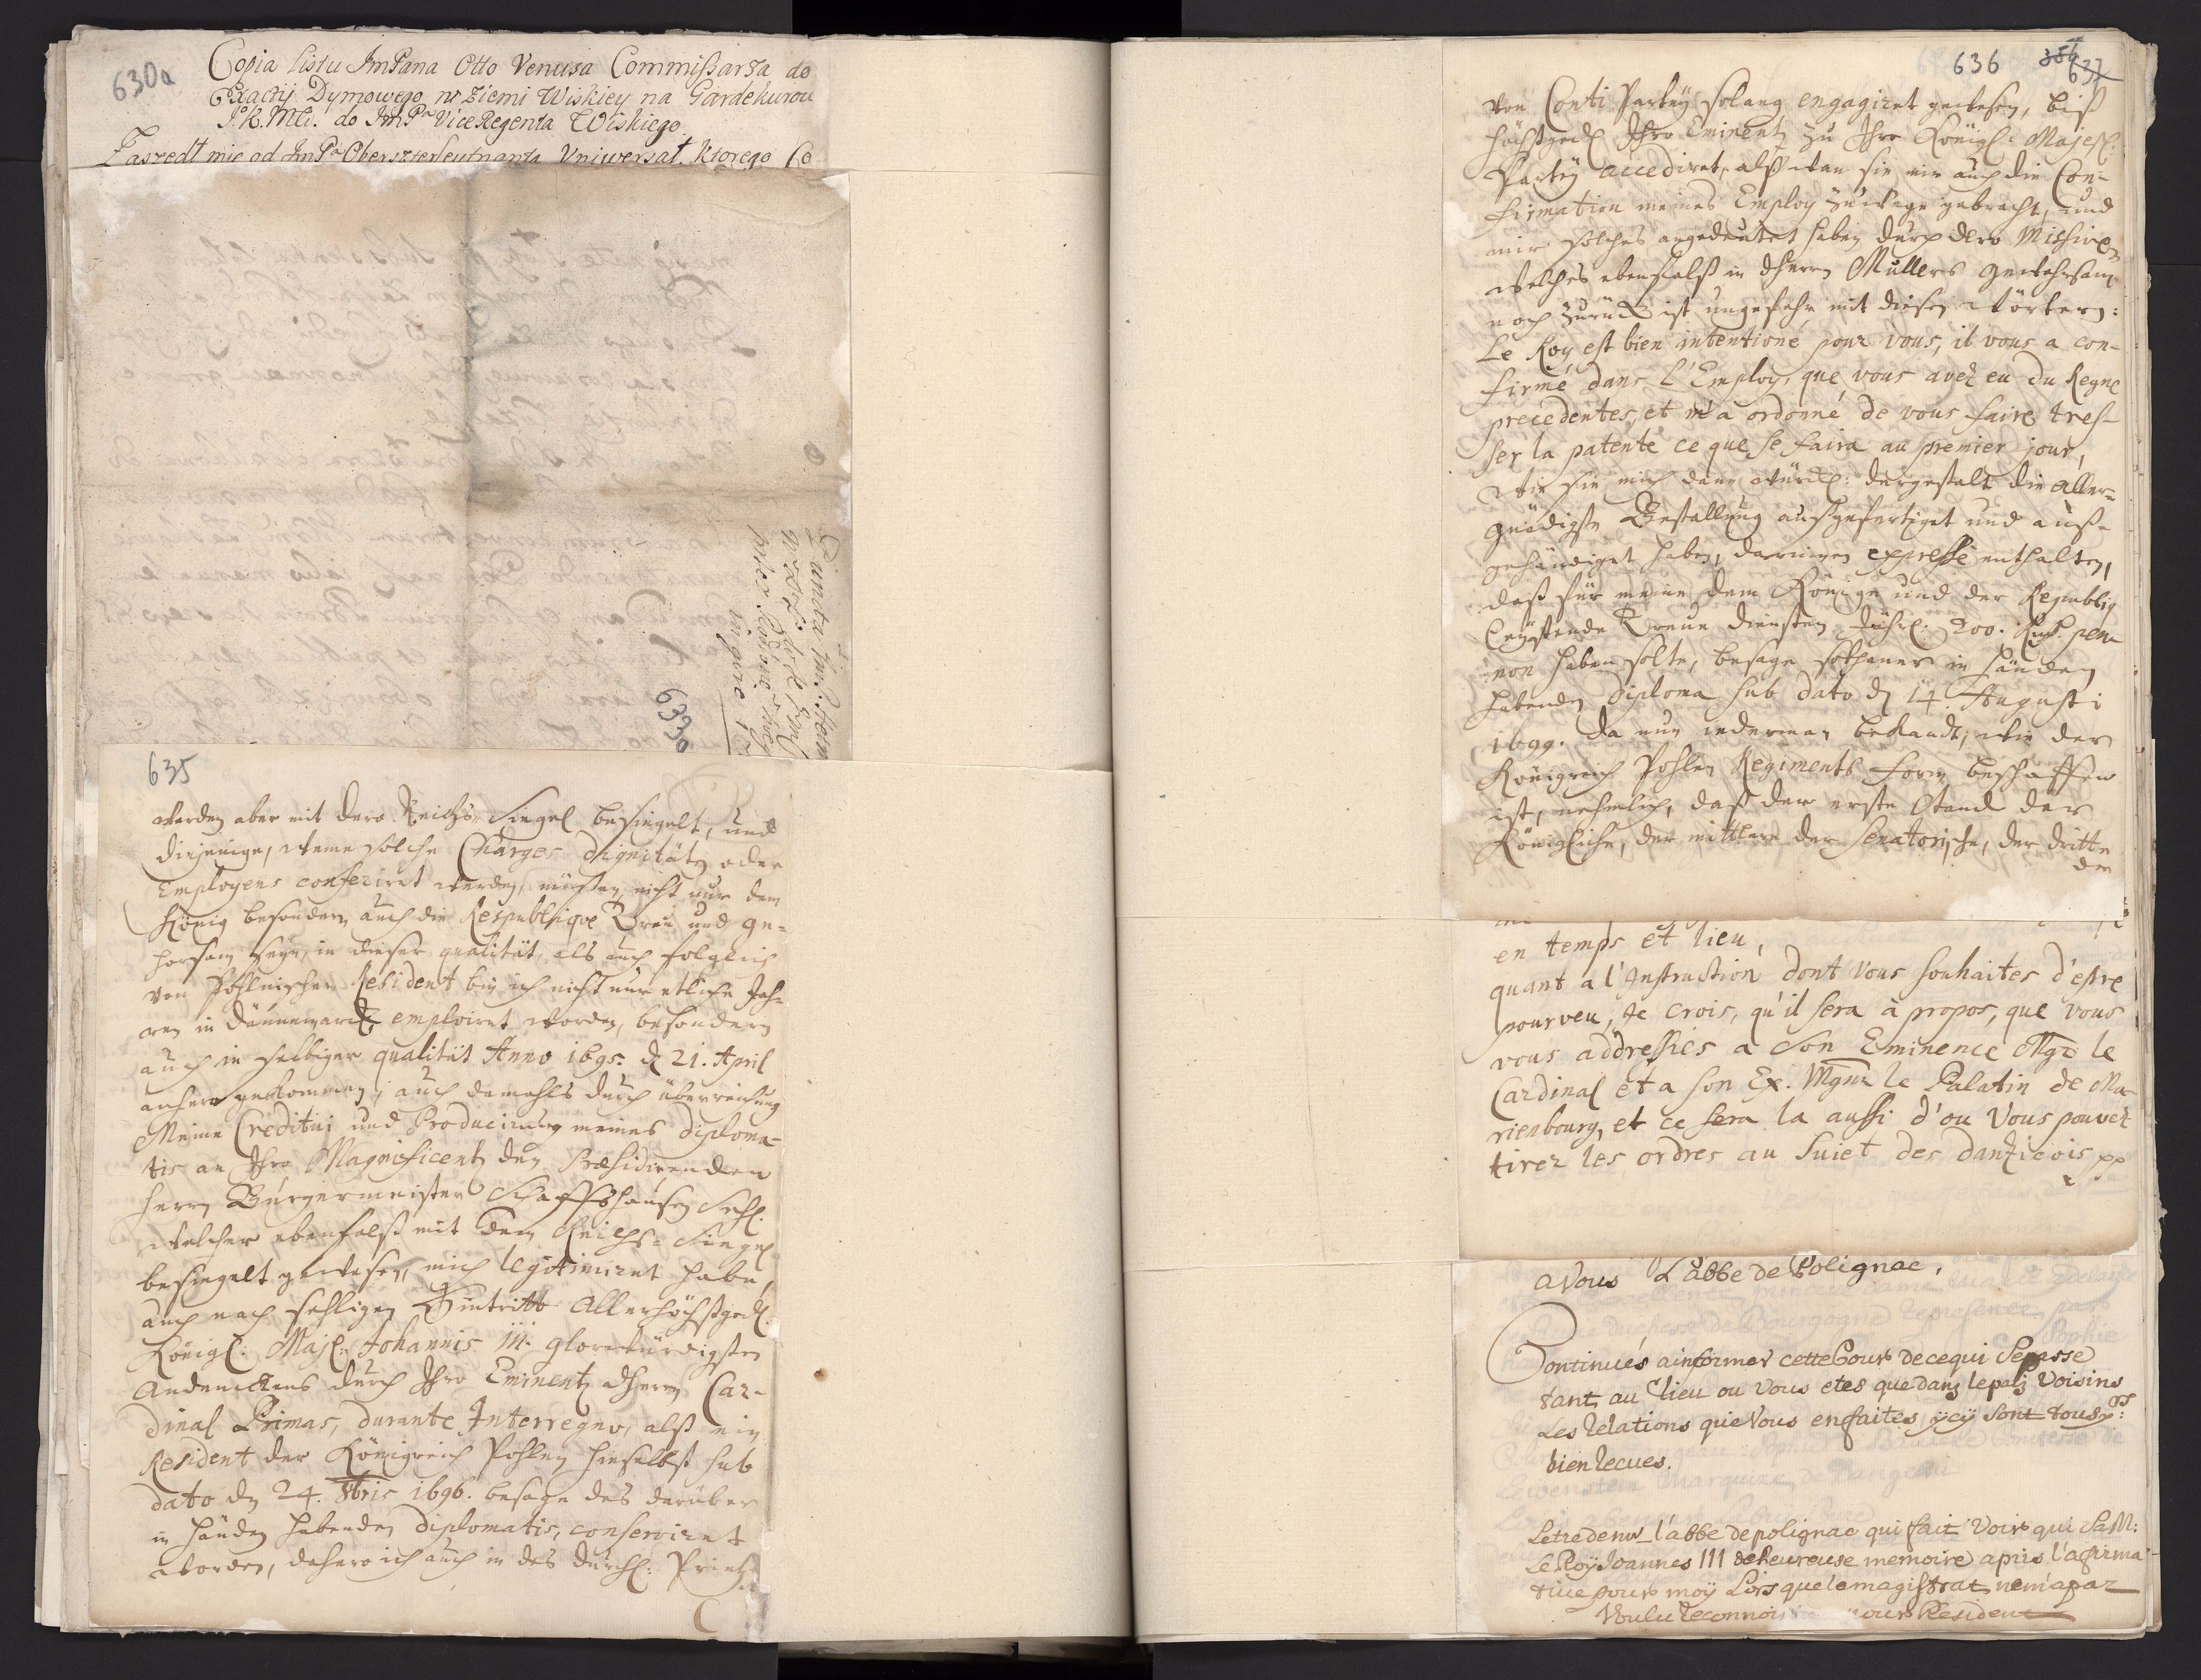 630a
Copia listu JmPana Otto Venusa Commissarza do
Exactij Dymowego w Ziemi Wiskiey na Gardekurou
J.K.Mci. do JmPa ViceRegenta Wiskiego
Zaszedt mie od JmPa Oberszterleutnanta Vniwersat. Ktorego Co
6330
635
werden aber mit dero Reichs Siegel besiegelt, und
diejenige, deme solche Charges dignitäten oder
Employens conferiret werden, müssen nicht nur dem
König besondern auch die Respublique Treu und ge-
horsam seyn, in dieser qualität, als auch folglich
von Pohlnischer Resident bin ich nicht nur etliche Jah-
ren in Dännemarck emploiret worden, besondern
auch in selbiger qualität Anno 1695. d 21. April
anhero gekommen, auch damahls durch überreichung
Meine Creditivi und Producirung meines diploma-
tis an Ihro Magnificentz den Præsidirenden
Herrn Bürgermeister Schaffshausen Sehl.
welcher ebenfalß mit dem Reichs-Siegel
besiegelt gewesen, mich legitimiret habe,
auch nach sehligen Hintritt Allerhöchstged.
Königl: Maj: Johannis III. glorwürdigsten
Andenckens durch Ihro Eminentz dHerrn Car-
dinal Primas, durante Interregno, alß ein
Resident der Königreich Pohlen hieselbst sub
dato dn 24. 8bris 1696. besage des darüber
in händen habenden diplomatis, conserviret
worden, dahero ich auch in des Durchl: Printz
636 356 637
von Conti Partey solang engagiret gewesen, biß
höchstged. Ihro Eminentz zu Ihro Königl: Majest.
Partey accediret, alß dan sie mir auch die Con-
firmation meines Employ zuwege gebracht, und
mir solches angedeutet haben durch dero Missiven
welches ebenfalß in dHerrn Müllers gewahrsam
noch zurück ist ungefehr mit diesen wörtern:
Le Roy est bien intentioné pour vous, il vous a con-
firmé dans l'Employ, que vous avez eu du Regne
precedentes, et m'a ordonné de vous faire tres-
ser la patente ce que se faira au premier jour,
wie sie mich dann würckl: dergestalt die Aller-
gnädigste Bestallung außgefertiget und auß-
gehändiget haben, darinnen expresse enthalten,
daß für meine dem Könige und der Republiq
leystende Treue diensten Jährl. 200. Rthl. pen-
non haben solte, besage sothaner in händen
habenden diploma sub dato d 14. Augusti
1699. da nun iederman bekandt, wie der
Königreich Pohlen Regiments form beschaffen
ist, nehmlich, daß der erste Stand der
Königliche, der mittlere der Senatorische, der dritte
der
en temps et lieu,
quant a l'Instruction dont vous souhaites d'estre
pourveu, Je crois, qu'il sera à propos, que vous
vous addressies a Son Eminence Mgr le
Cardinal et a son Ex. Mgnr le Palatin de Ma-
rienbourg, et ce sera la aussi d'ou Vous pouvez
tirer les ordres au sujet des danzicois pp
a Vous L'abbe de Polignac,
Continués a informer cette Cour de ce qui Se passe
tant au lieu ou Vous etes que dans le païs Voisins
Les relations que Vous en faites ycÿ sont tousjrs:
bien recues.
Letre de mr l'abbe de polignac qui fait Voir qui Sa M:
Le Roÿ Joannes III de heureuse memoire apris l'afirma-
tive pour moÿ Lors que le magistrat ne m'a pas
Voulu reconnoi pour Resident